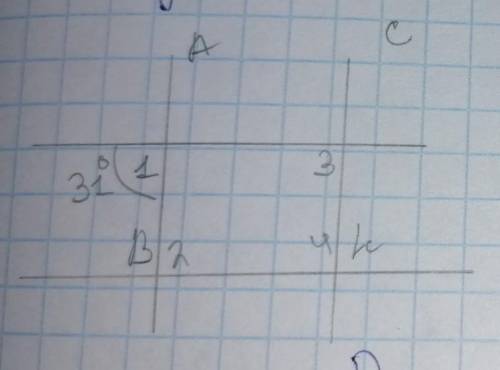 A C
31° 1 3
B 2 4 К
D